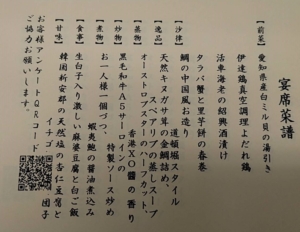 宴席菜譜
【前菜】
愛知県産白ミル貝の湯引き
伊達鶏真空調理よだれ鶏
活車海老の紹興酒漬け
タラバ蟹と里芋餅の春巻
道頓堀スタイル
【沙律】
鯛の中国風お造り
【逸品】
天然キヌガサ茸の金鯛詰め
スペアリブの蒸しスープ
【蒸物】
オーストロブスターハーフカット
香港XO醤の香り
【炒物】
黒毛和牛A5サーロインの
特製ソース炒め
【煮物】
お一人様一個づつ、
蝦夷鮑の醤油煮込み
【食事】
生白子入り激しい麻婆豆腐と白ご飯
【甘味】
韓国新安郡の天然塩の杏仁豆腐と
イチゴ
団子
お客様アンケートQRコード
ご協力お願いします。